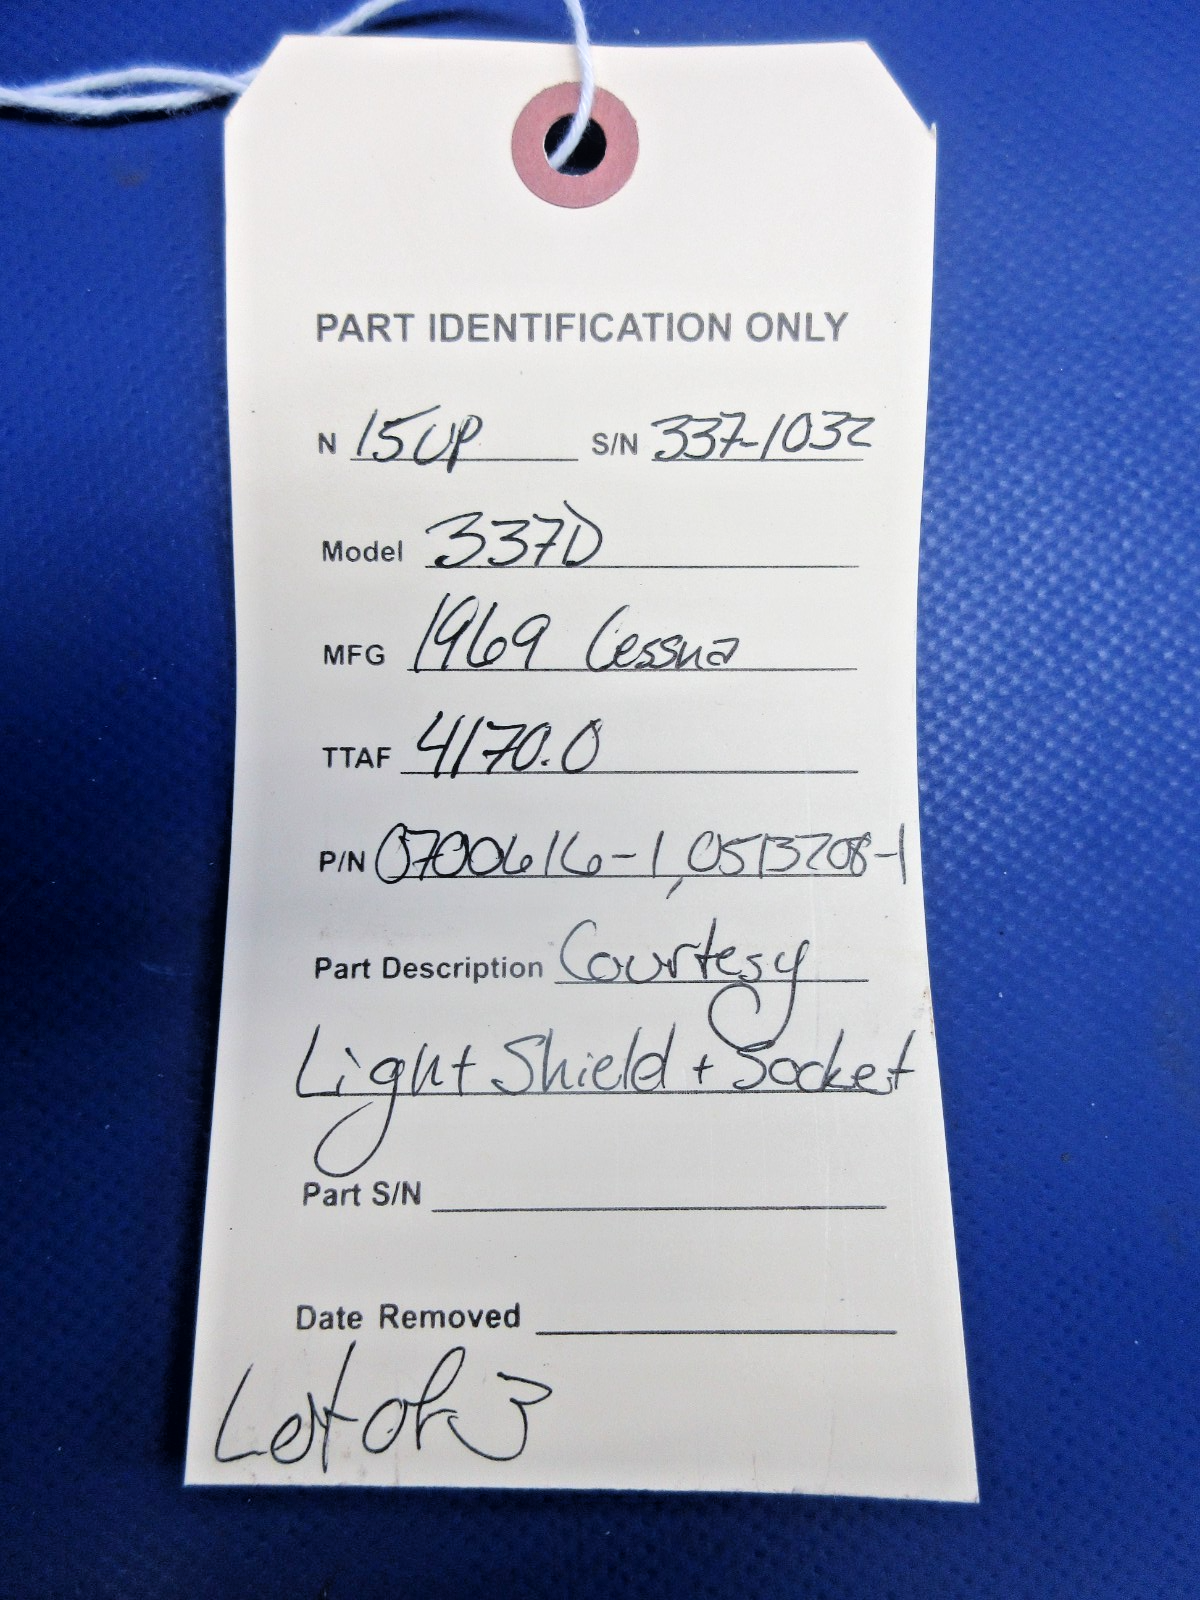 PART IDENTIFICATION ONLY
N 15UP S/N 337-1032
Model 337D
MFG 1969 Cessna
TTAF 4170.0
P/N 0700616-1, 0513208-1
Part Description Courtesy
Light Shield + Socket
Part S/N
Date Removed
Lot of 3